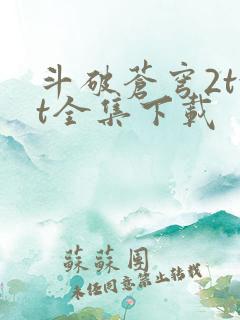 斗破蒼穹2t
t全集下載
蘇蘇團
未任同意禁止转载